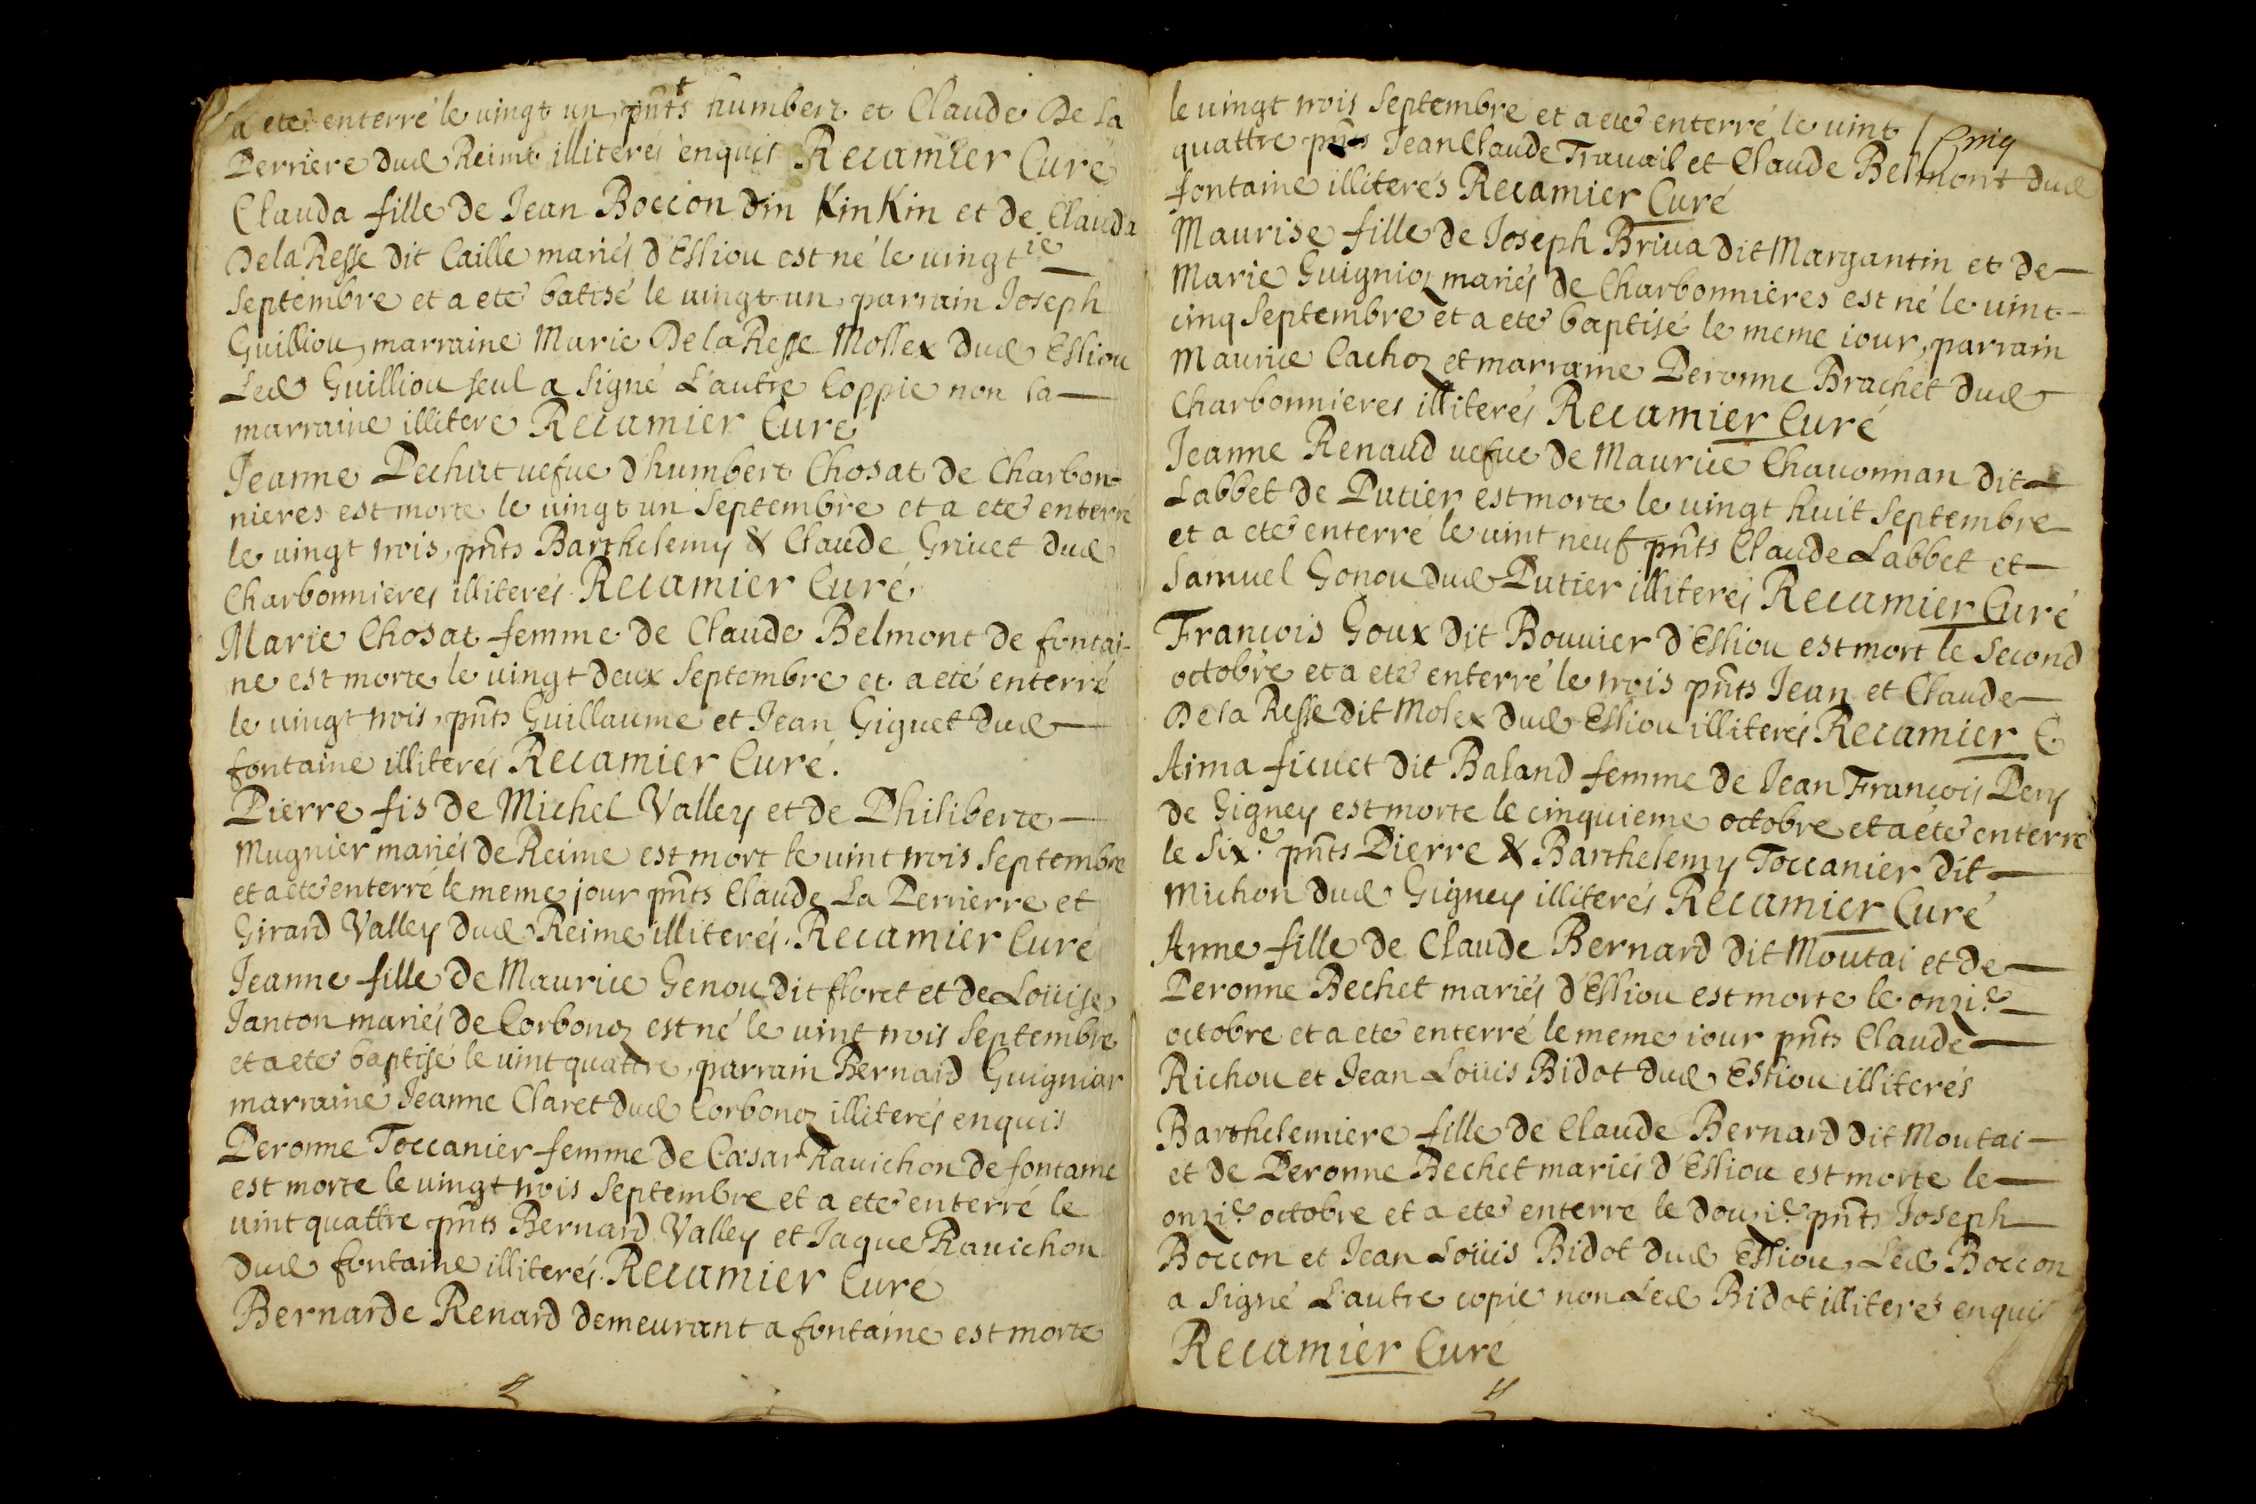 a eté enterré le vingt un, pnts humbert et Claude De La
Perriere dud Reime illiterés enquis Recamier Curé
Clauda fille de Jean Boccon din KinKin et de Clauda
De la Resse dit Caille mariés d'Essiou est né le vingtie
Septembre et a eté batisé le vingt un, parrain Joseph
Guilliou, marraine Marie De la Resse Mollex dud Essiou
Led Guilliou seul a signé L'autre Coppie non la
marraine illitere Recamier Curé
Jeanne Pechut vefue d'humbert Chosat de Charbon-
nieres est morte le vingt un Septembre et a eté enterré
le vingt trois, pnts Barthelemy & Claude Grivet dud
Charbonnieres illiterés Recamier Curé
Marie Chosat femme de Claude Belmont de fontai-
ne est morte le vingt deux Septembre et a eté enterré
le vingt trois, pnts Guillaume et Jean Giguet dud
fontaine illiterés Recamier Curé.
Pierre fis de Michel Valley et de Philiberte
Mugnier mariés de Reime est mort le vint trois Septembre
et a eté enterré le meme jour pnts Claude La Perrierre et
Girard Valley dud Reime illiterés. Recamier Curé
Jeanne fille de Maurice Genou dit floret et de Loüise
Janton mariés de Corbonoz est né le vint trois Septembre
et a eté baptisé le vint quattre, parrain Bernard Guigniar
marraine Jeanne Claret dud Corbonoz illiterés enquis
Peronne Toccanier femme de Cæsar Ravichon de fontaine
est morte le vingt trois Septembre et a eté enterré le
vint quattre pnts Bernard Valley et Jaque Ravichon
dud fontaine illiterés. Recamier Curé
Bernarde Renard demeurant a fontaine est morte
le vingt trois Septembre et a eté enterré le vint / cinq
quattre pnts Jean Claude Travail et Claude Belmont dud
fontaine illiterés Recamier Curé
Maurise fille de Joseph Briva dit Margantin et de
Marie Guignioz mariés de Charbonnieres est né le vint
cinq Septembre et a eté baptisé le meme iour, parrain
Maurice Cachoz et marraine Peronne Brachet dud
Charbonnieres illiterés Recamier Curé
Jeanne Renaud vefue de Maurice Chavonnan dit
Labbet de Putier est morte le vingt huit Septembre
et a eté enterré le vint neuf pnts Claude Labbet et
Samuel Gonou dud Putier illiterés Recamier Curé
François Goux dit Bouvier d'Essiou est mort le Second
octobre et a eté enterré le trois pnts Jean et Claude
De la Resse dit Molex dud Essiou illiterés Recamier C.
Aima ficuet dit Baland femme de Jean François Pery
de Gigney est morte le cinquieme octobre et a eté enterré
le Six.e pnts Pierre & Barthelemy Toccanier dit
Michon dud Gigney illiterés Recamier Curé
Anne fille de Claude Bernard dit Moutai et de
Peronne Bechet mariés d'Essiou est morte le onzi.e
octobre et a eté enterré le meme iour pnts Claude
Richou et Jean Loüis Bidot dud Essiou illiterés
Barthelemiere fille de Claude Bernard dit Moutai
et de Peronne Bechet mariés d'Essiou est morte le
onzi.e octobre et a eté enterre le douzi.e pnts Joseph
Boccon et Jean Loüis Bidot dud Essiou, Led Boccon
a Signé L'autre copie non Led Bidot illiteré enquis
Recamier Curé